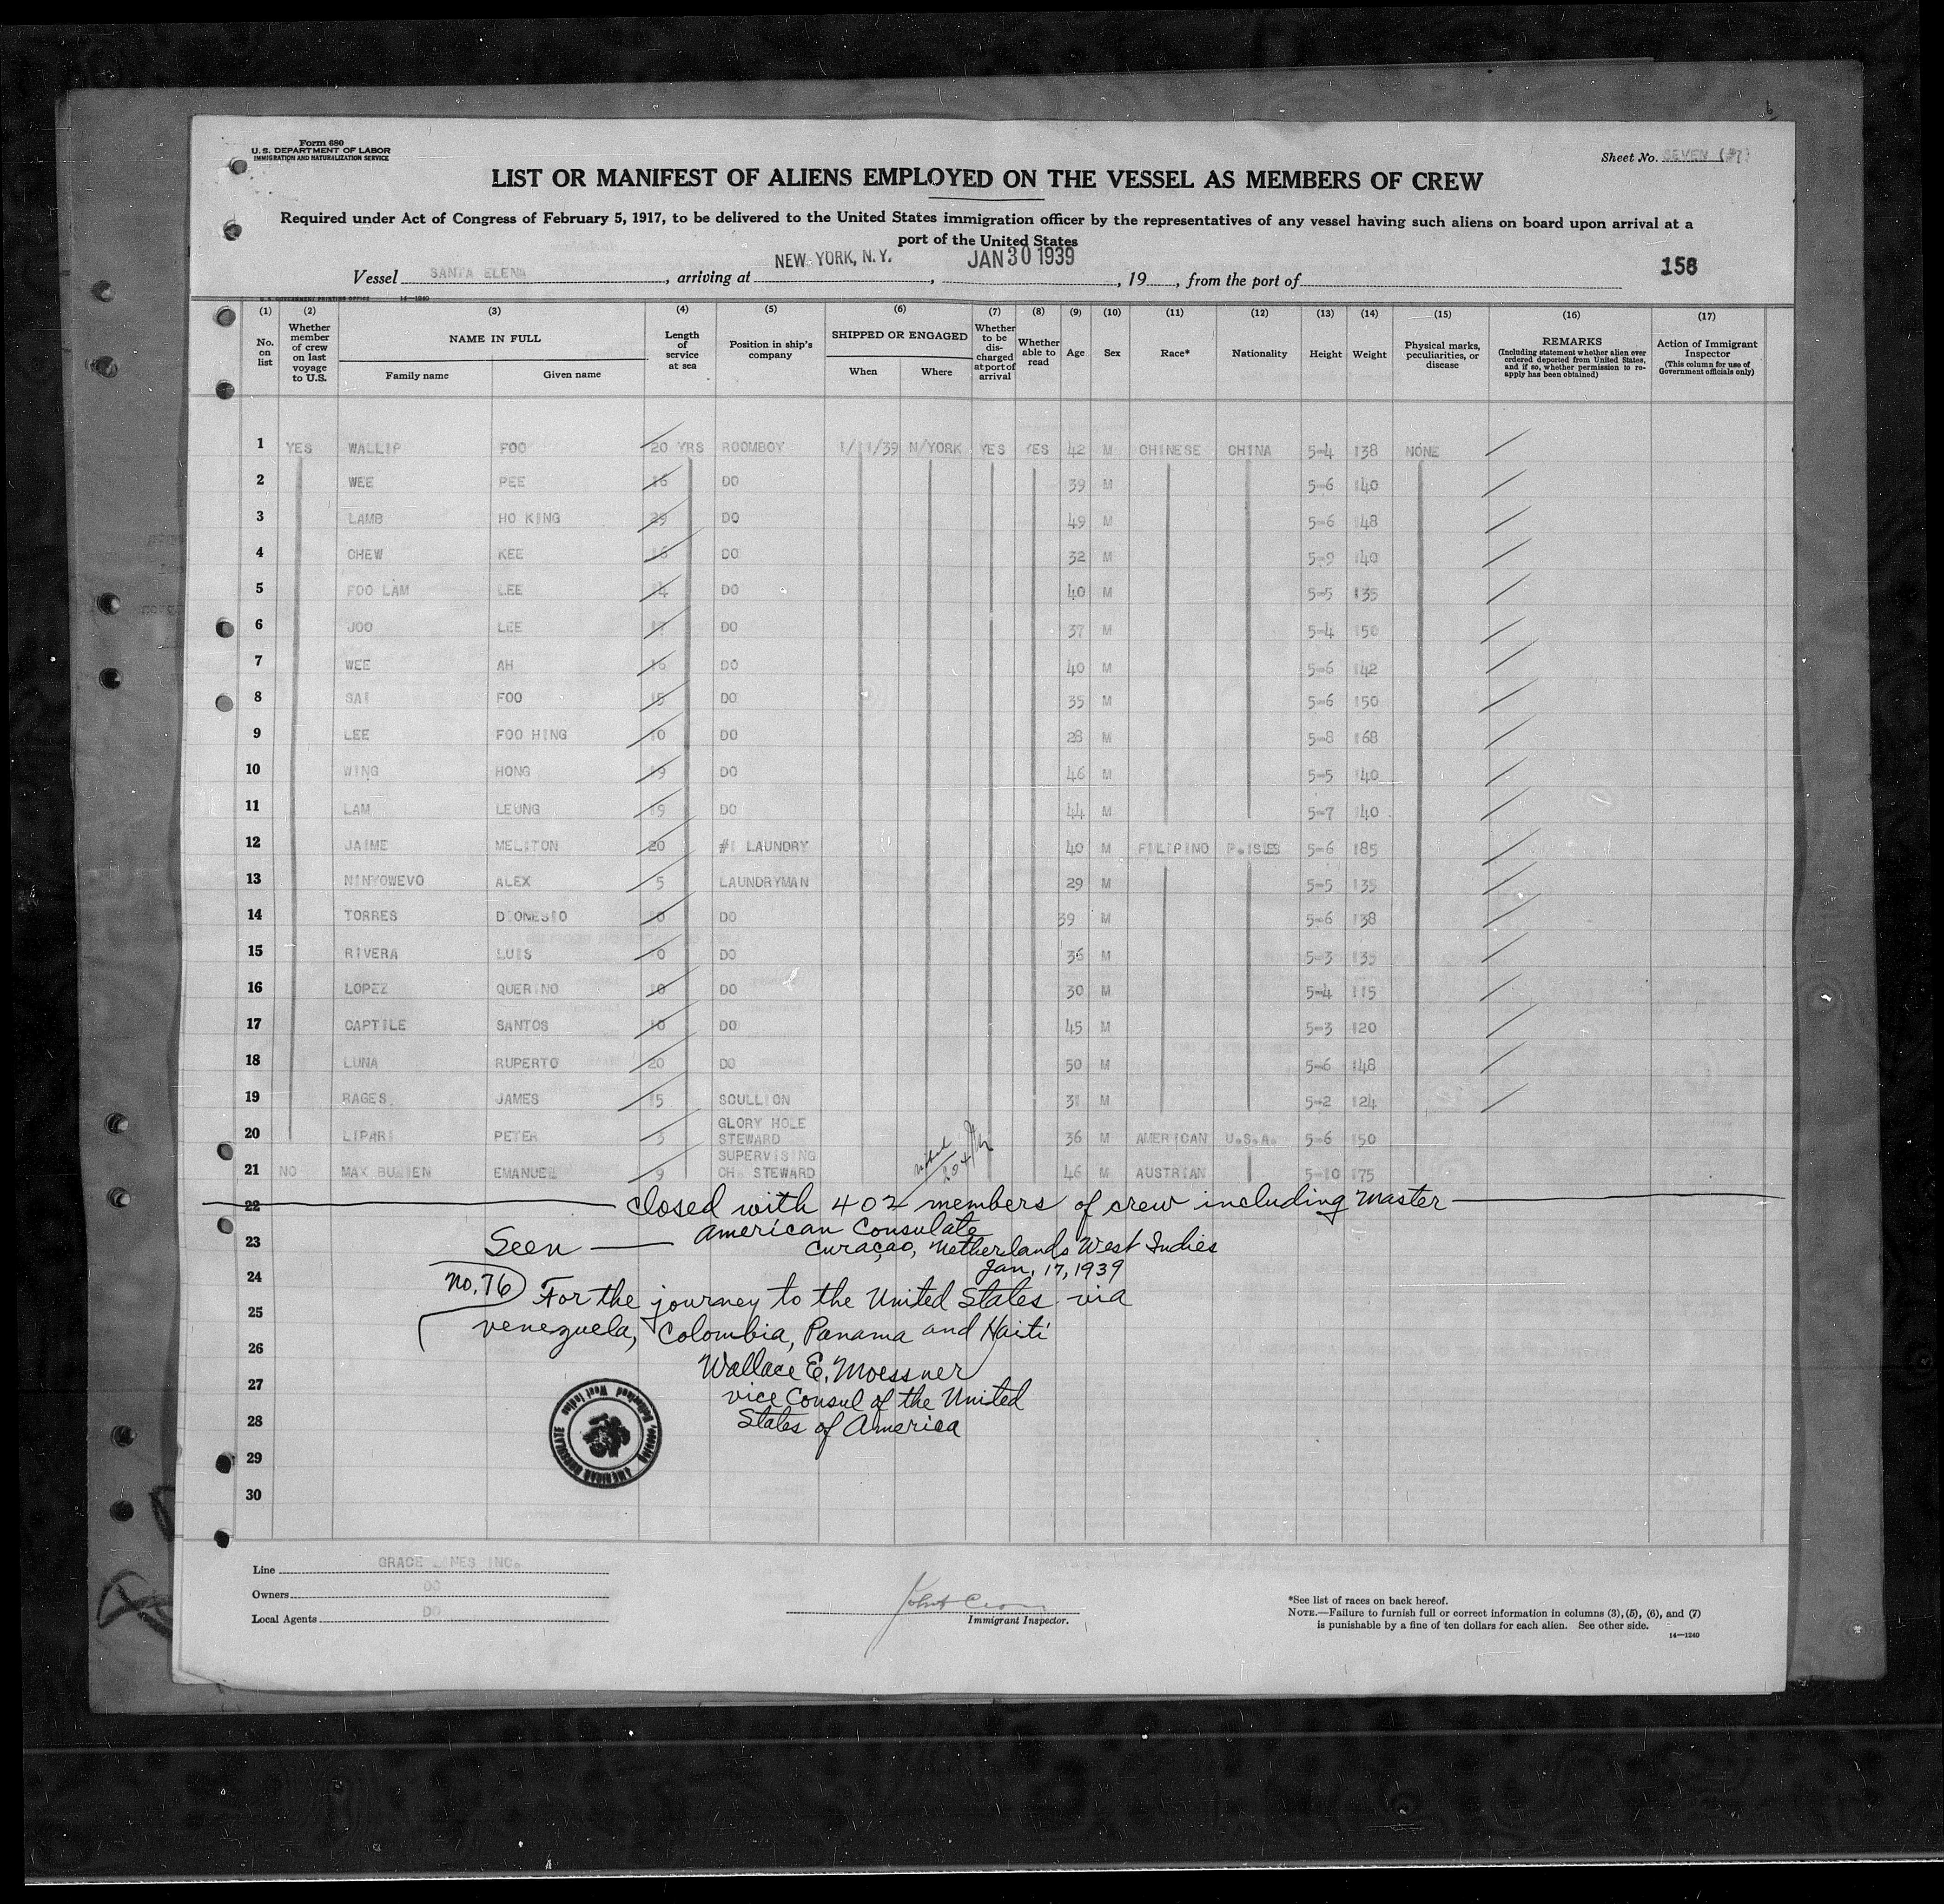 Form 680
U.S. DEPARTMENT OF LABOR
IMMIGRATION AND NATURALIZATION SERVICE
Sheet No. SEVEN (#7)
LIST OR MANIFEST OF ALIENS EMPLOYED ON THE VESSEL AS MEMBERS OF CREW
Required under Act of Congress of February 5, 1917, to be delivered to the United States immigration officer by the representatives of any vessel having such aliens on board upon arrival at a
port of the United States
Vessel SANTA ELENA, arriving at NEW YORK, N.Y., JAN 30 1939, 19, from the port of
158
U.S. GOVERNMENT PRINTING OFFICE 14—1240
(1) No. on list
(2) Whether member of crew on last voyage to U.S.
(3) NAME IN FULL Family name Given name
(4) Length of service at sea
(5) Position in ship's company
(6) SHIPPED OR ENGAGED When Where
(7) Whether to be discharged at port of arrival
(8) Whether able to read
(9) Age
(10) Sex
(11) Race*
(12) Nationality
(13) Height
(14) Weight
(15) Physical marks, peculiarities, or disease
(16) REMARKS (Including statement whether alien ever ordered deported from United States, and if so, whether permission to reapply has been obtained)
(17) Action of Immigrant Inspector (This column for use of Government officials only)
1 YES WALLIP FOO 20 YRS ROOMBOY 1/11/39 N/YORK YES YES 42 M CHINESE CHINA 5-4 138 NONE
2 WEE PEE 16 DO 39 M 5-6 140
3 LAMB HO KING 29 DO 49 M 5-6 148
4 CHEW KEE 16 DO 32 M 5-9 140
5 FOO LAM LEE 14 DO 40 M 5-5 135
6 JOO LEE 17 DO 37 M 5-4 150
7 WEE AH 16 DO 40 M 5-6 142
8 SAI FOO 15 DO 35 M 5-6 150
9 LEE FOO HING 10 DO 28 M 5-8 168
10 WING HONG 19 DO 46 M 5-5 140
11 LAM LEUNG 19 DO 44 M 5-7 140
12 JAIME MELITON 20 #1 LAUNDRY 40 M FILIPINO P.ISLES 5-6 185
13 NINYOWEVO ALEX 5 LAUNDRYMAN 29 M 5-5 135
14 TORRES DIONESIO 10 DO 39 M 5-6 138
15 RIVERA LUIS 10 DO 36 M 5-3 135
16 LOPEZ QUERINO 10 DO 30 M 5-4 115
17 CAPTILE SANTOS 10 DO 45 M 5-3 120
18 LUNA RUPERTO 20 DO 50 M 5-6 148
19 RAGES JAMES 15 SCULLION 31 M 5-2 124
20 LIPARI PETER 3 GLORY HOLE STEWARD 36 M AMERICAN U.S.A. 5-6 150
21 NO MAX BUMEN EMANUEL 9 SUPERVISING CH. STEWARD 46 M AUSTRIAN 5-10 175
22 closed with 402 members of crew including Master
American Consulate
23 Seen — Curaçao, Netherlands West Indies
24 Jan. 17, 1939
No. 76 For the journey to the United States via
25 Venezuela, Colombia, Panama and Haiti
26
Wallace E. Moessner
27 Vice Consul of the United
28 States of America
AMERICAN CONSULATE Netherland West Indies
29
30
Line GRACE LINES INC.
Owners DO
Local Agents DO
Immigrant Inspector.
*See list of races on back hereof.
NOTE.—Failure to furnish full or correct information in columns (3), (5), (6), and (7)
is punishable by a fine of ten dollars for each alien. See other side.
14—1240